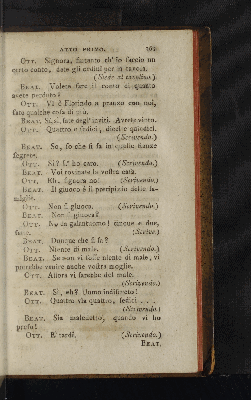 ATTO PRIMO.
OTT. Signora, fattanto ch'io faccio un
certo conto, date gli ordini per la tavola.
(Siede al tavolino.)
BEAT. Volete fare il conto di quanto
avete perduto?
OTT. Vi è Florindo a pranzo con noi,
fate qualche cosa di più.
BEAT. Sì sì, fate degl'inviti.
OTT. Quattro e sedici, dieci e quindici.
(Scrivendo.)
BEAT. So, so che si fa in quelle stanze
segrete.
OTT. Sì? L' ho caro. (Scrivendo.)
BEAT. Voi rovinate la vostra casa.
OTT. Oh, signora no. (Scrivendo.)
BEAT. Il giuoco è il precipizio delle fa-
miglie.
OTT. Non si giuoca. (Scrivendo.)
BEAT. Non si giuoca?
OTT. No da galantuomo! cinque e due,
sette. (Scrive.)
BEAT. Dunque che si fa?
OTT. Niente di male. (Scrivendo.)
BEAT. Se non vi fosse niente di male, vi
potrebbe venire anche vostra moglie.
OTT. Allora vi sarebbe del male.
(Scrivendo.)
BEAT. Sì, eh? Uomo indiscreto!
OTT. Quattro via quattro, sedici ....
(Scrivendo.)
BEAT. Sia maledetto, quando vi ho
preso!
OTT. E' tardi. (Scrivendo.)
BEAT.